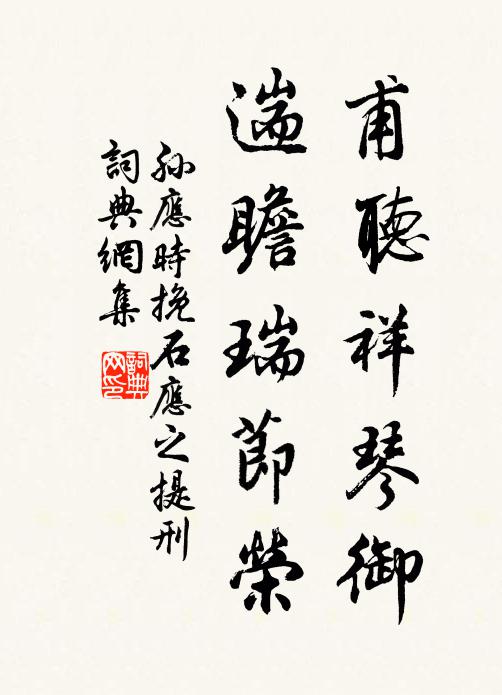 甫聽祥琴御
遄瞻瑞節榮
孫應時挽石應之提刑
詞典網集
詞典
网印